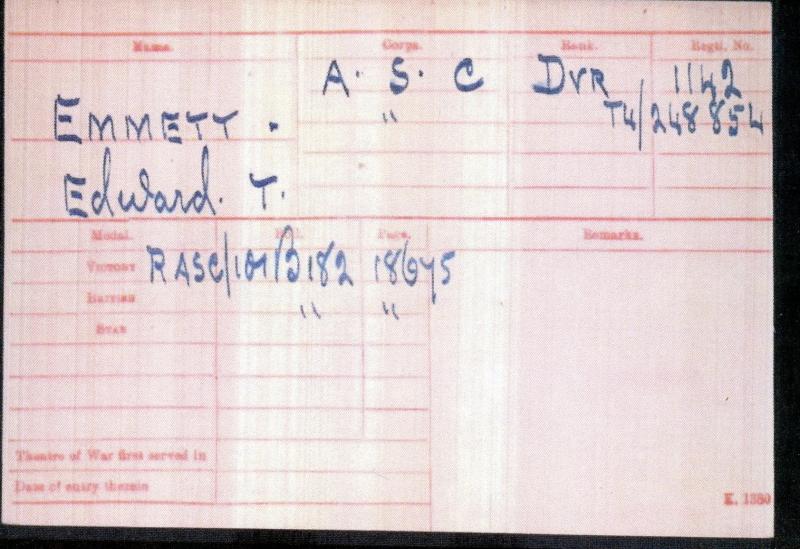 Name. Corps. Rank. Regtl. No.
A. S. C DVR 1142
EMMETT. " T4/248854
Edward. T.
Medal. Roll. Page. Remarks.
VICTORY RASC/101B182 18675
BRITISH " "
STAR
Theatre of War first served in
Date of entry therein
K. 1380